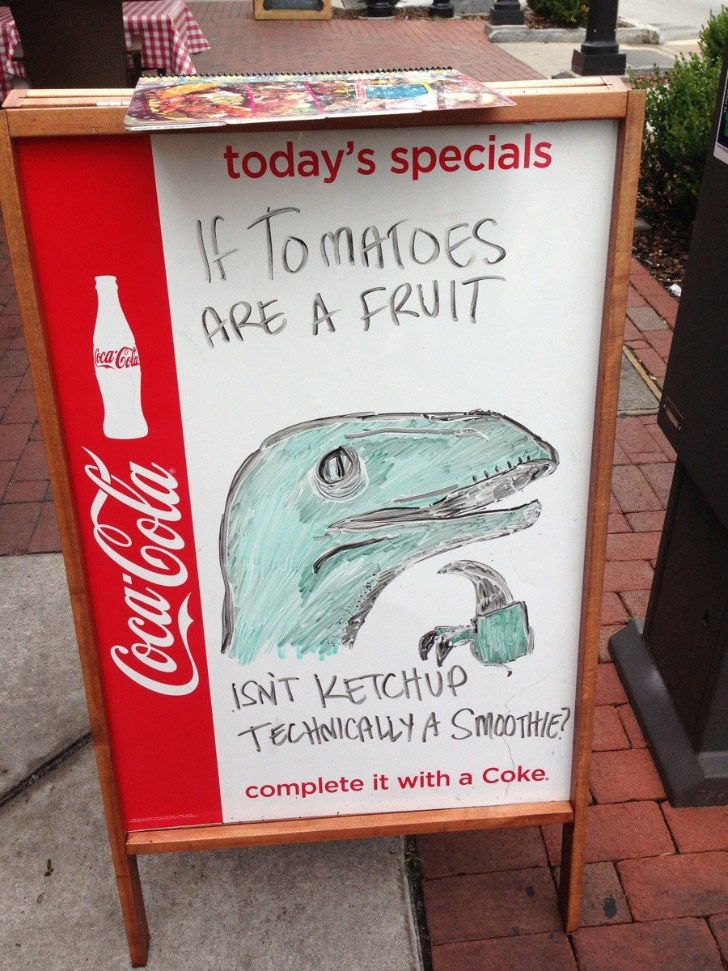 today's specials
IF TOMATOES
ARE A FRUIT
Coca-Cola
Coca-Cola
ISN'T KETCHUP
TECHNICALLY A SMOOTHIE?
complete it with a Coke.